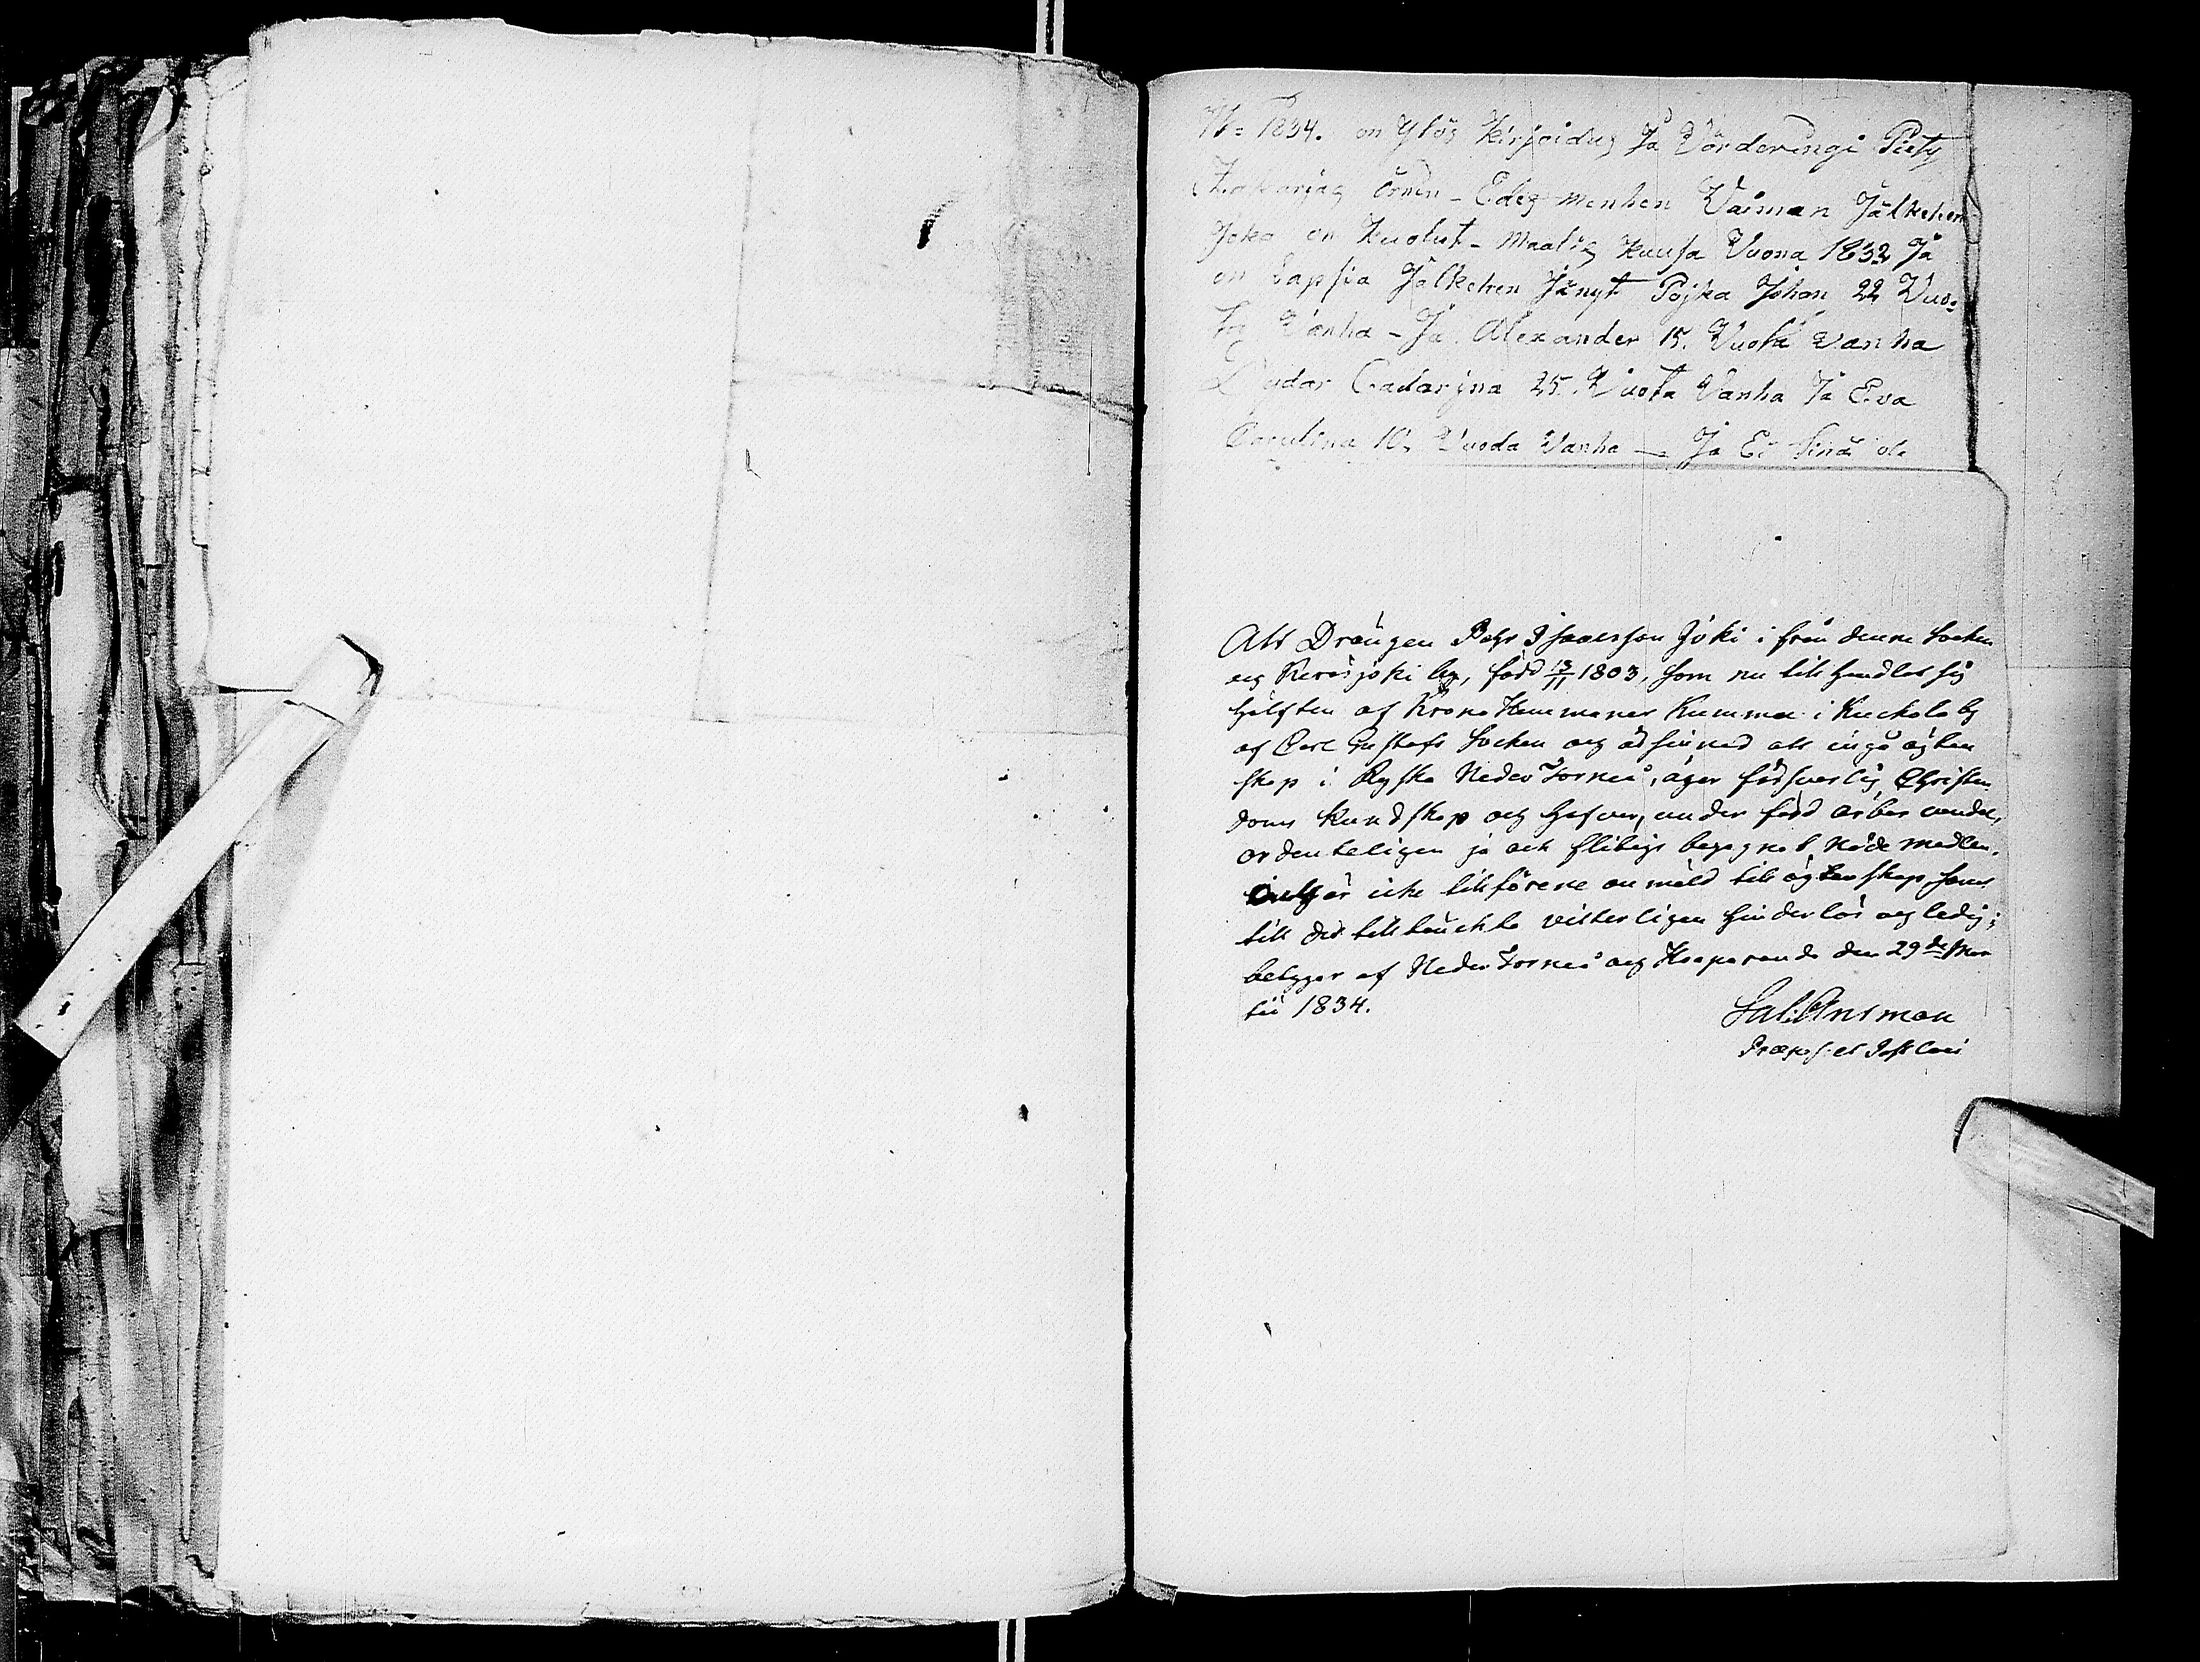 V= 1834. on Ylös Kirjoidus Ja Värderingi Piety
Zakarjas Örnin - Edes menhen Vaiman Jälkehen
Joka on Kuolut - Maalis kuusa Vuona 1832 Ja
on Lapsia Jälkehen Jänyt Pojka Johan 22 Vuo-
ta Vanha - Ja Alexander 15. Vuota vanha
Cadarjna 25. Vuota Vanha Ja Eva
Carulina 10. Vuoda Vanha — Ja Ei Sinä ole
Att Drängen Pehr Isacsson Joki i från denna Socken
og Keräsjoki by, född 13/11 1803, som nu till handlat sig
hälften af Krono Hemmanet Kumma i Kuckola by
af Carl Gustafs Socken og är sinnad att ingå ägten
skap i Ryska Neder Torneå, äger försvarlig Christen
doms kundskap och hafver, under förd ärbar vandel,
ordenteligen ja och flitigt begagnat nådemedlen,
är icke tillförene anmäld till ägtenskap samt
till det tilltänckta vitterligen hinderlös og ledig;
betygar af Neder Torneå og Haaparanda den 29de Mar
tii 1834.
Præpos. et Past. loci